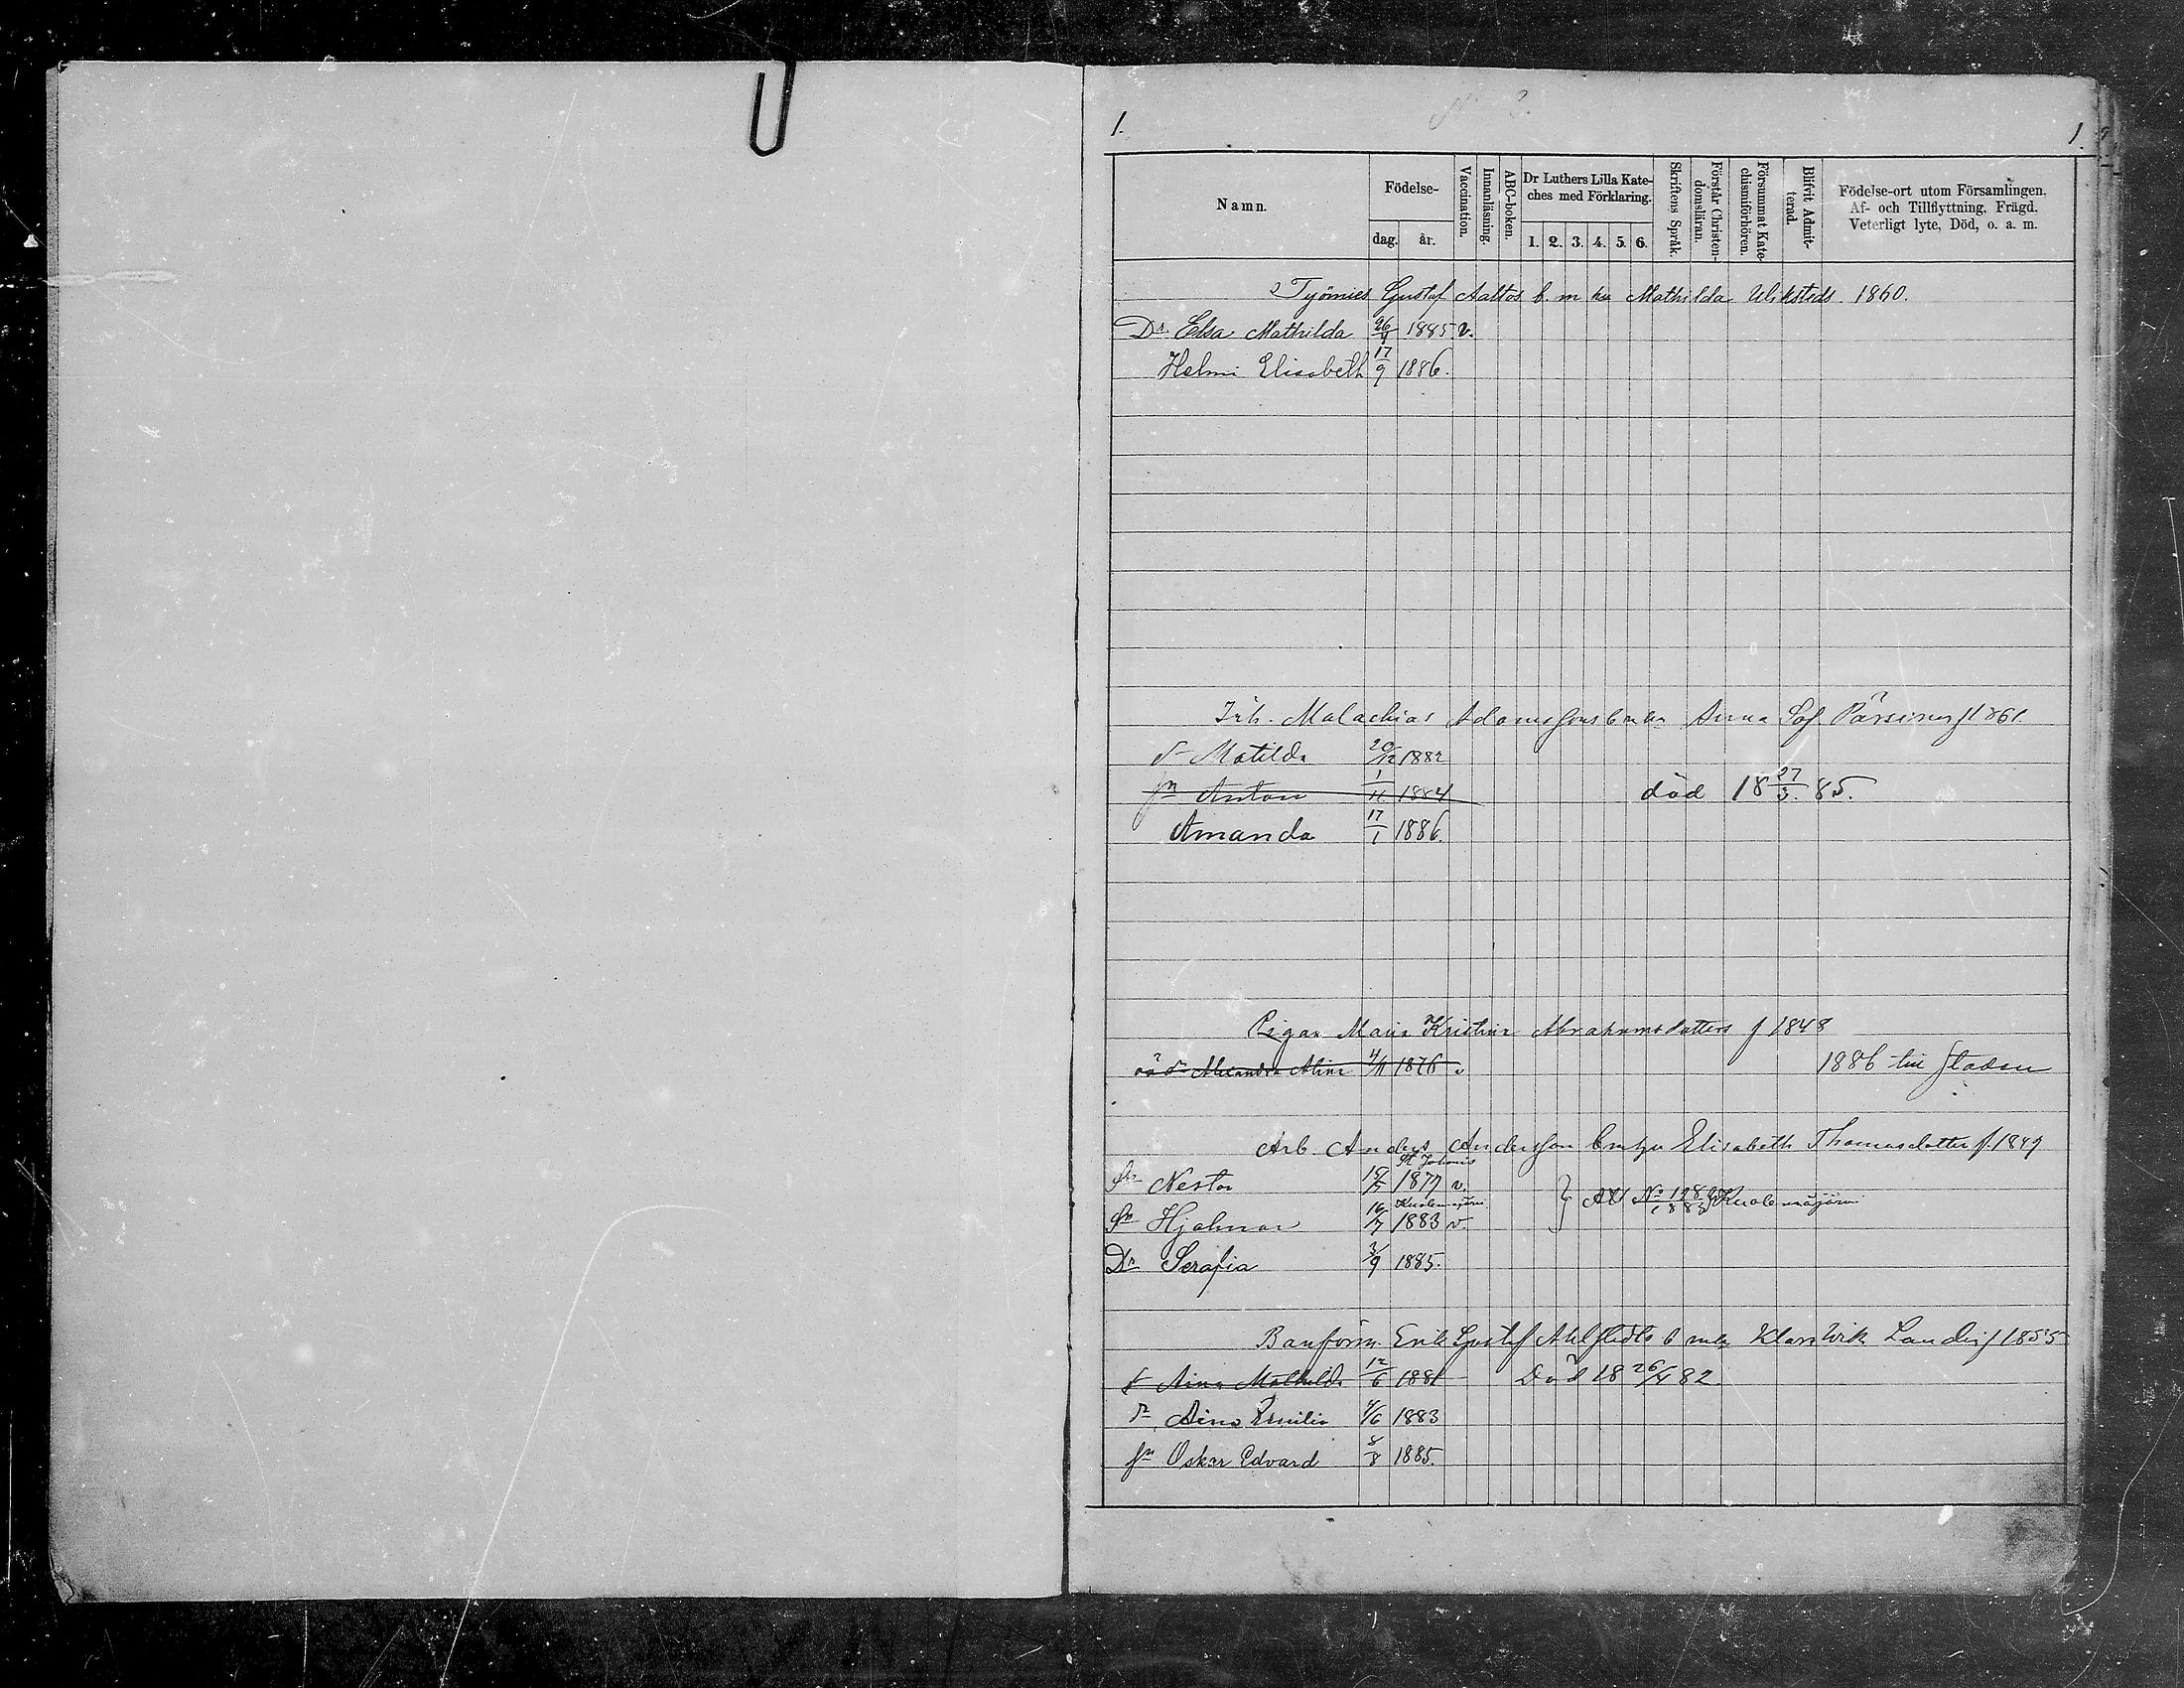 1.
1.
Namn.
Födelse-
dag.
år.
Vaccination.
Innanläsning.
ABC-boken.
Dr Luthers Lilla Kate-
ches med Förklaring.
1. 2. 3. 4. 5. 6.
Skriftens Språk.
Förstår Christen-
domsläran.
Försummat Kate-
chismiförhören.
Blifvit Admit-
terad.
Födelse-ort utom Församlingen,
Af- och Tillflyttning, Frägd,
Veterligt lyte, Död, o. a. m.
Työmies Gustaf Aaltos b. m hu Mathilda 1860.
Dr Elsa Mathilda 26/4 1885. v.
Helmi Elisabeth 17/9 1886.
Malachias Adamssons b m hu Anna Sof f 1861.
dr Matilda 20/12 1882
sn Anton 1/11 1884 död 18 27/3 85.
Amanda 17/1 1886.
Pigan Maria Kristina Abrahamsdotters f 1848
oä dr Alexandra Alina 4/11 1876 v 1886 till staden
Arb. Anders Andersson b m hu Elisabeth Thomasdotter f. 1849
St Johannis
Sn Nestor 15/5 1877 v.
Kuolemajärvi
Sn Hjalmar 16/7 1883 v. } Att No 128/1885 Kuolemajärvi
Dr Serafia 3/9 1885.
Banförm. Erik Gustaf Ahlstedts b m h Klara Landin f 1855
d Aina Mathilda 12/6 1881 Död 18 26/4 82.
dr Aina Emilia 4/6 1883
sn Oskar Edvard 8/8 1885.